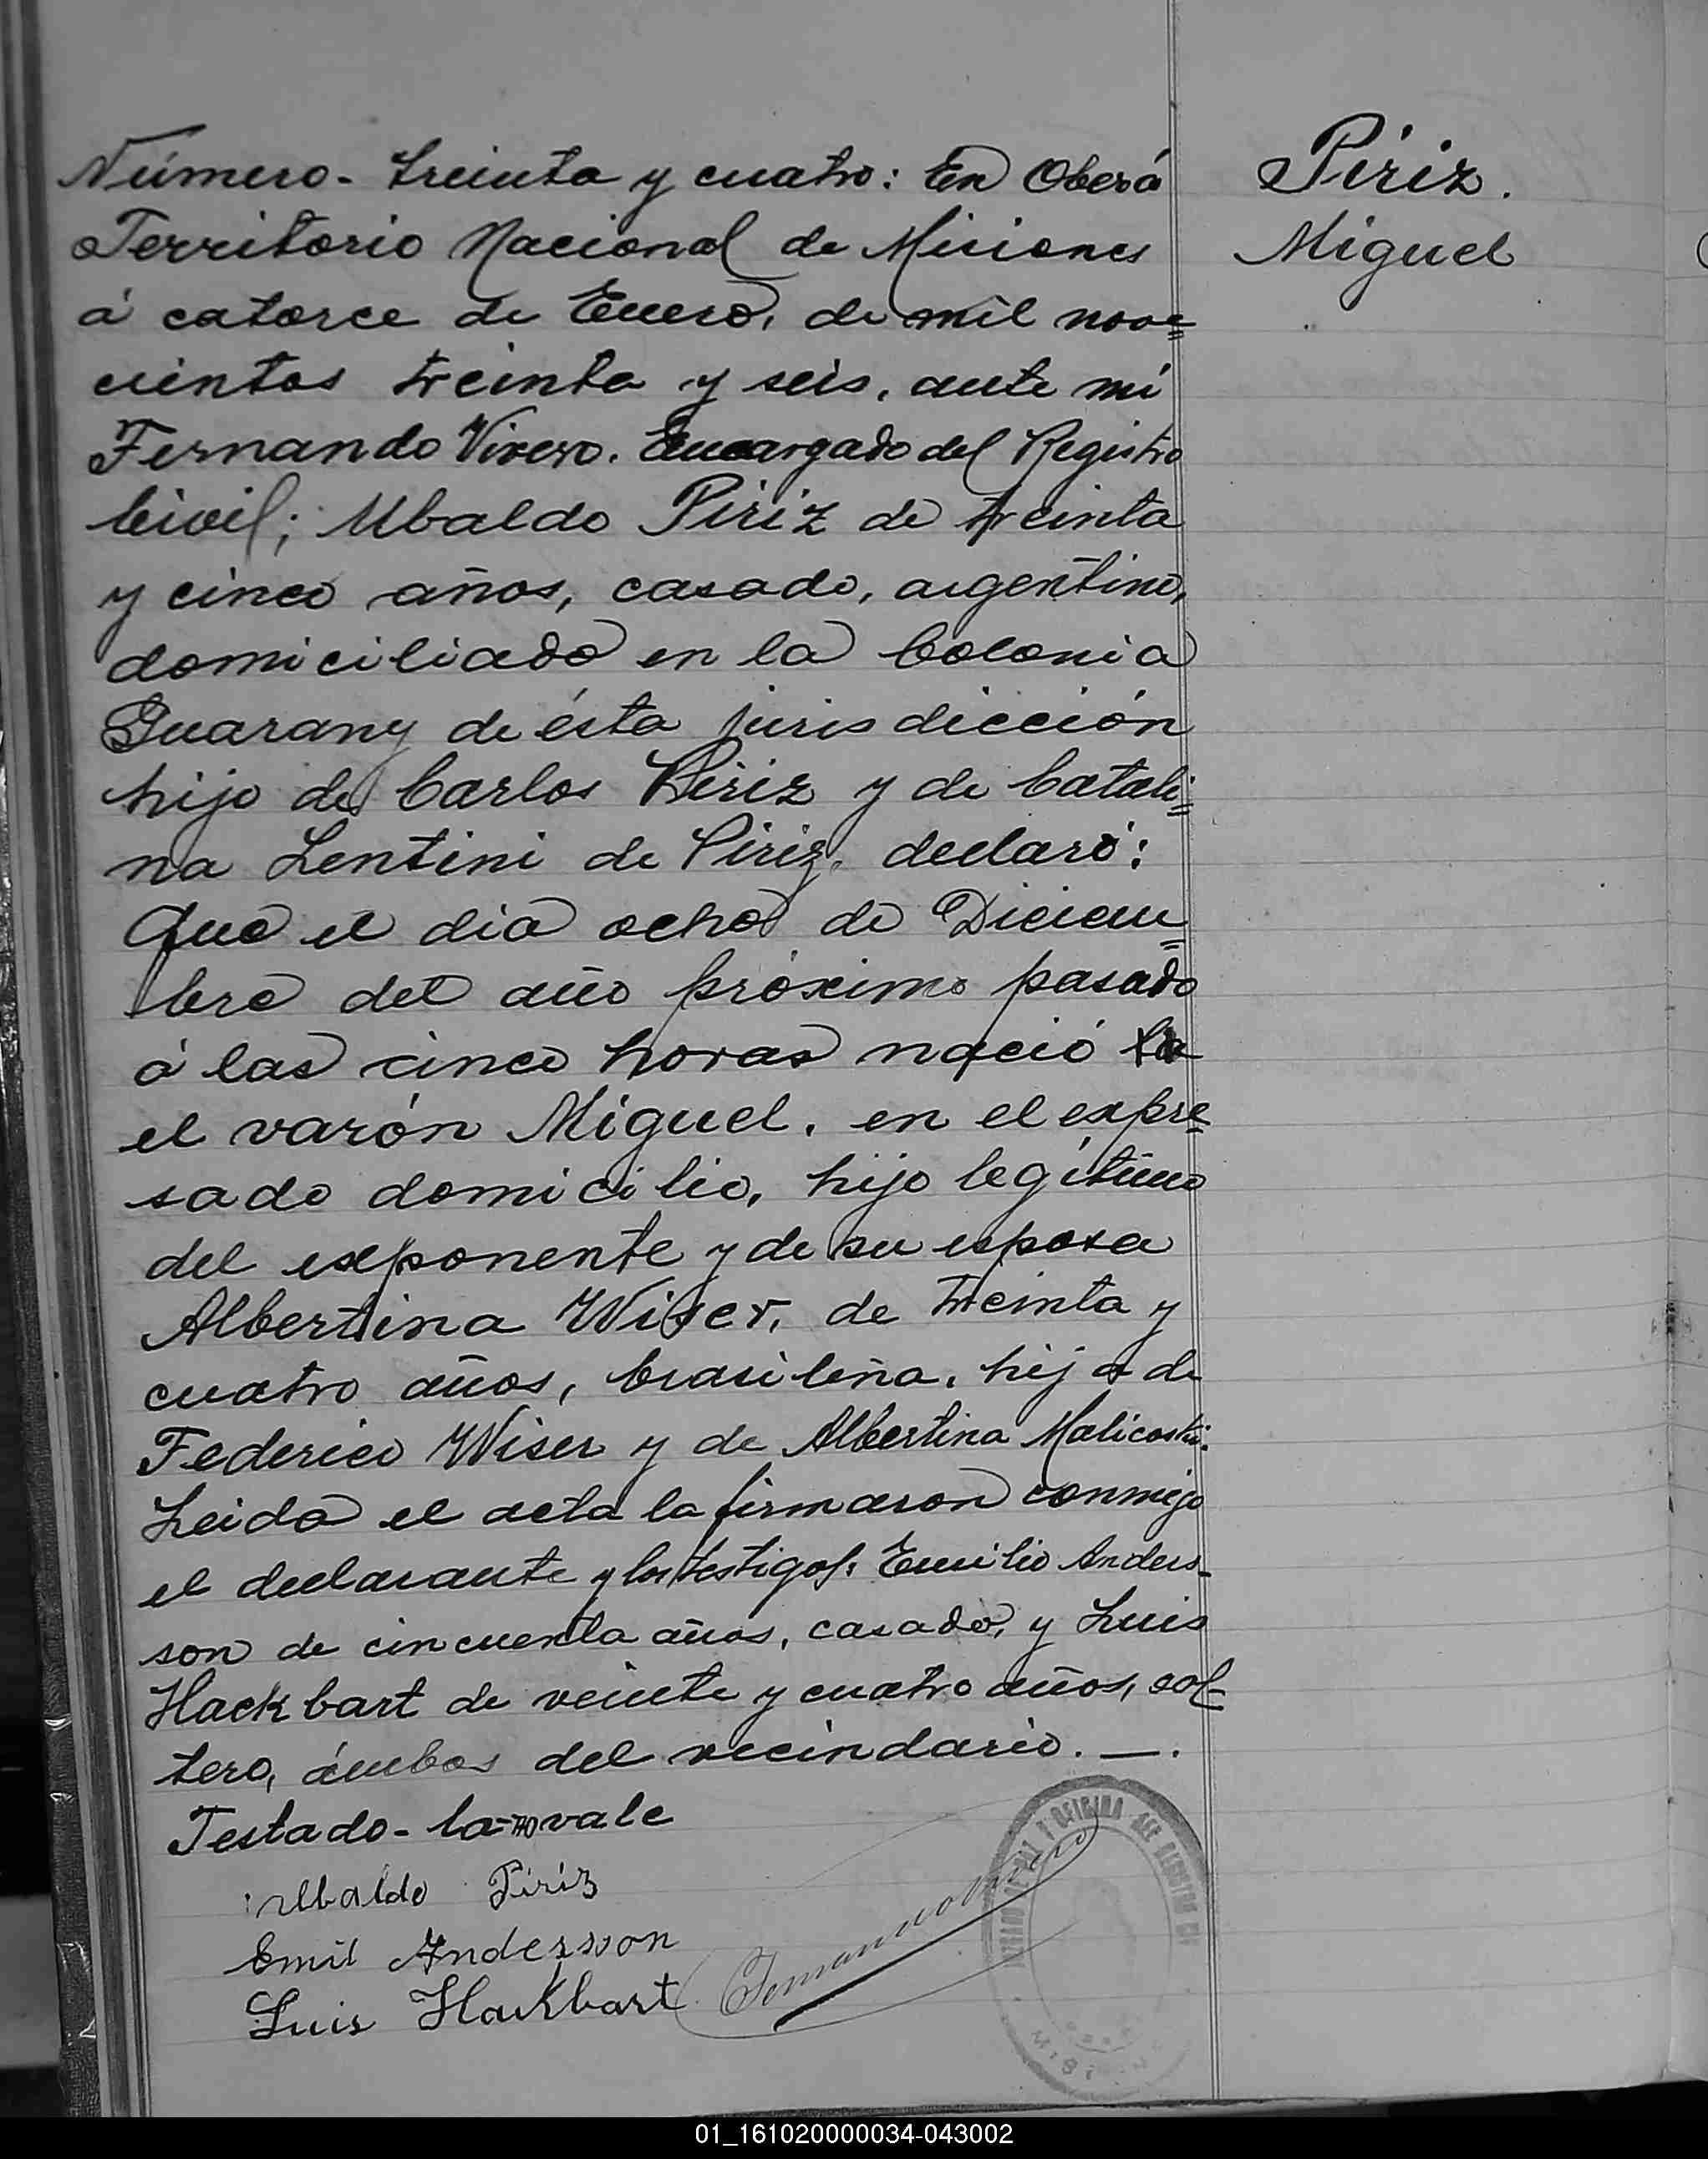 Número - treinta y cuatro: En Oberá
Territorio Nacional de Misiones
á catorce de Enero, de mil nove=
cientos treinta y seis, ante mí
Fernando Vivero. Encargado del Registro
Civil; Ubaldo Piriz de treinta
y cinco años, casado, argentino,
domiciliado en la Colonia
Guarany de ésta jurisdicción
hijo de Carlos Piriz y de Catali=
na Lentini de Piriz. declaró:
Que el dia ocho de Diciem=
bre del año próximo pasado
á las cinco horas nació la
el varón Miguel, en el expre=
sado domicilio, hijo legítimo
del exponente y de su esposa
Albertina Wiser, de treinta y
cuatro años, brasileña, hija de
Federico Wiser y de Albertina
Leida el acta la firmaron conmigo
el declarante y los testigos: Emilio Anders-
son de cincuenta años, casado, y Luis
Hackbart de veinte y cuatro años, sol-
tero, ámbos del vecindario. —.
Testado - la - no vale
Ubaldo Piriz
Emil Andersson
Luis Hackbart
Piriz.
Miguel
01_161020000034-043002